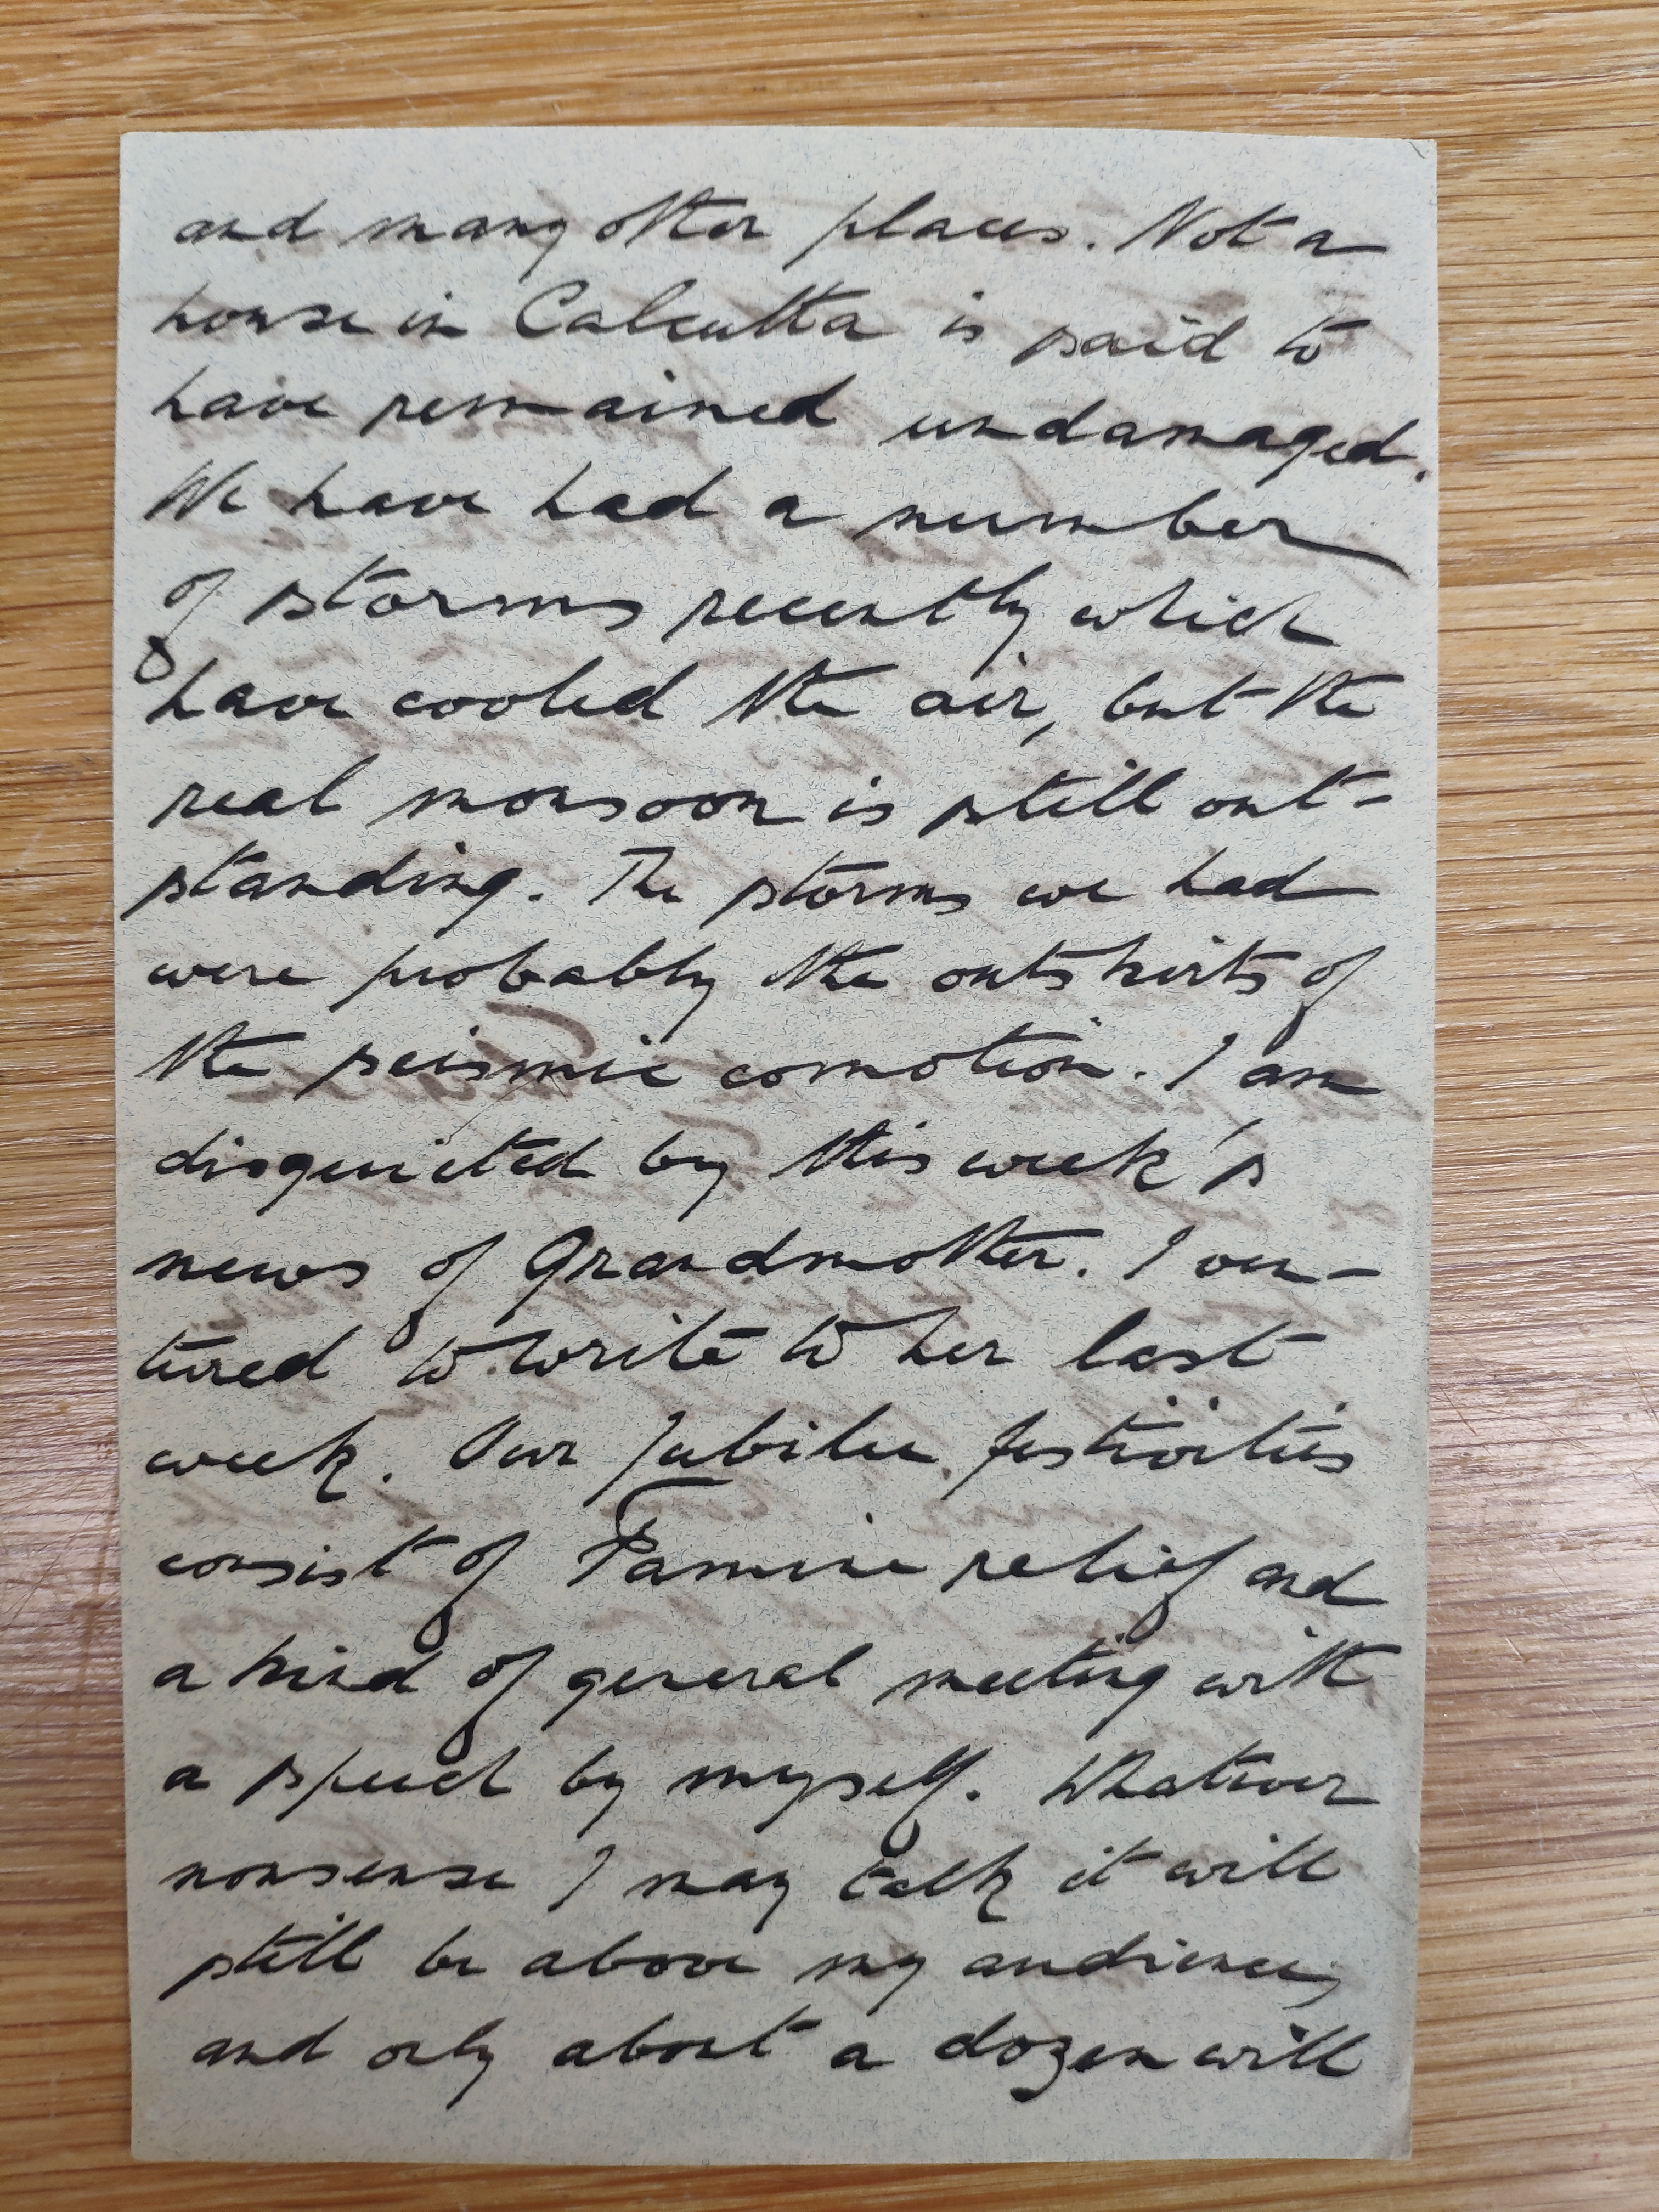 and many other places. Not a
house in Calcutta is said to
have remained undamaged.
We have had a number
of storms recently which
have cooled the air, but the
real monsoon is still out-
standing. The storms we had
were probably the outskirts of
the seismic comotion. I am
disquieted by this week's
news of Grandmother. I ven-
tured to write to her last
week. Our Jubilee festivities
consist of Famine relief and
a kind of general meeting with
a speech by myself. Whatever
nonsense I may talk it will
still be above my audience,
and only about a dozen will